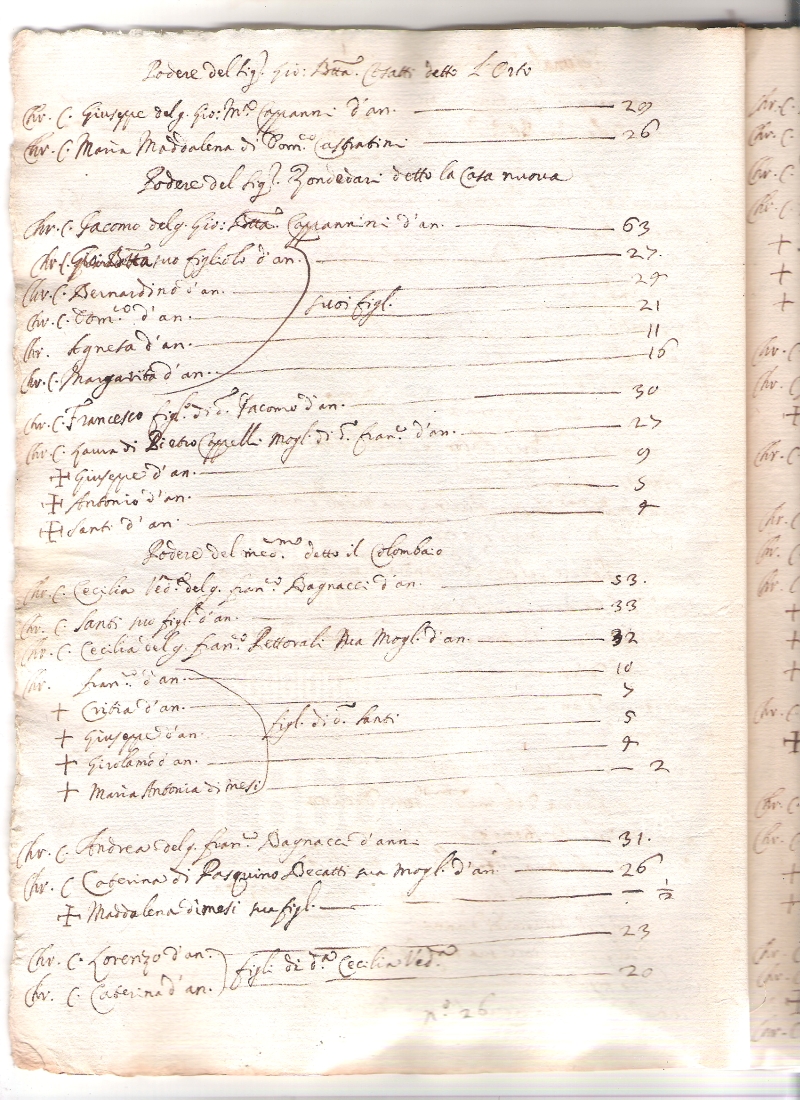 Podere del Sig.r Gio: Btta. Cosatti detto L'Orto
Chr. C. Giuseppe del q. Gio: M.a Capanni d'an. 29
Chr. C. Maria Maddalena di Dom.co Castratini 26
Podere del Sig.r Zondedari detto la Casa nuova
Chr. C. Jacomo del q. Gio: Btta. Capannini d'an. 63
Chr. C. Gio: Btta suo figliolo d'an. 27.
Chr. C. Bernardino d'an. 24
Chr. C. Dom.co d'an. suoi figl. 21
Chr. Agnesa d'an. 11
Chr. C. Margarita d'an. 16
Chr. C. Francesco figl. di d.o Jacomo d'an. 30
Chr. C. Laura di Pietro Cappelli Mogl. di d.o fran.co d'an. 27
✠ Giuseppe d'an. 9
✠ Antonio d'an. 5
✠ Santi d'an. 4
Podere del med.mo detto il Colombaio
Chr. C. Cecilia Ved.a del q. fran.co Bagnacci d'an. 53.
Chr. C. Santi suo figl. d'an. 33
Chr. C. Cecilia del q. fran.co Pettorali sua Mogl. d'an. 32
Chr. fran.co d'an. 10
+ Critia d'an. 7
+ Giuseppe d'an. figl. di d.o Santi 5
+ Girolamo d'an. 4
+ Maria Antonia di mesi 2
Chr. C. Andrea del q. fran.co Bagnacci d'anni 31.
Chr. C. Caterina di Pasquino Becatti sua Mogl. d'an. 26
✠ Maddalena di mesi sua figl. — 1/2
Chr. C. Lorenzo d'an. figli di d.a Cecilia Ved.a 23
Chr. C. Caterina d'an. 20
n.o 26